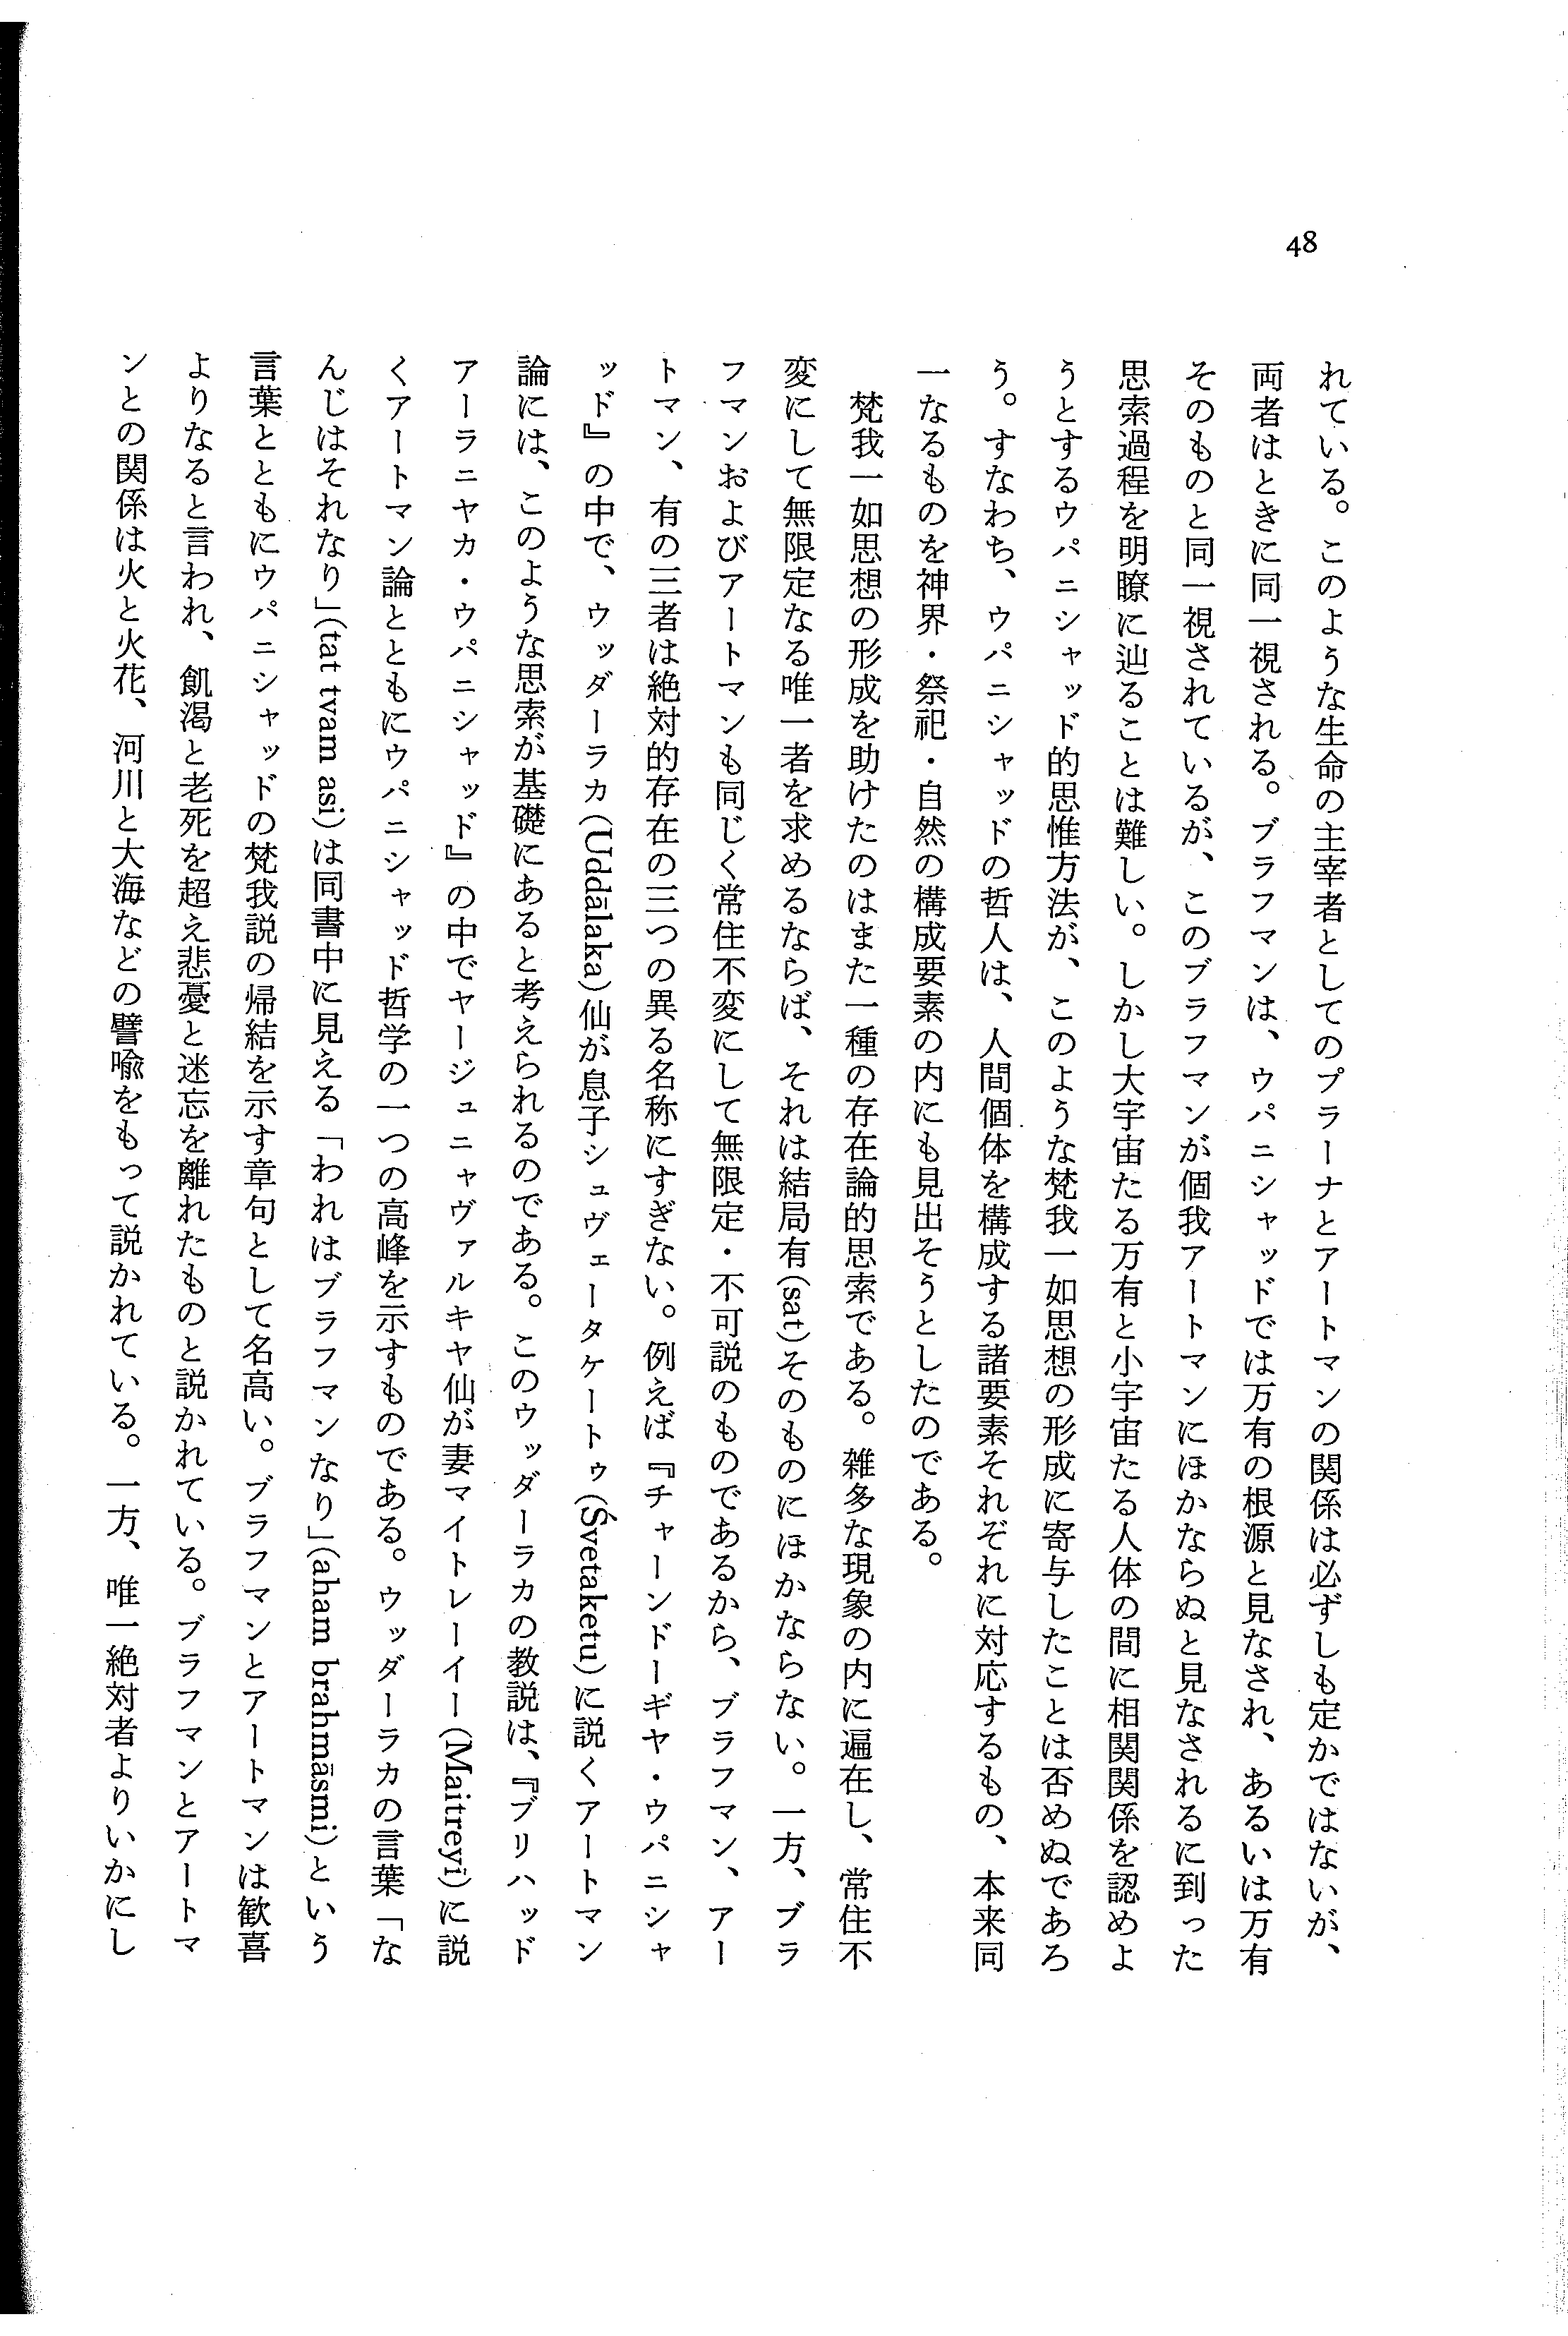 48
れている。このような生命の主宰者としてのプラーナとアートマンの関係は必ずしも定かではないが、
両者はときに同一視される。ブラフマンは、ウパニシャッドでは万有の根源と見なされ、あるいは万有
そのものと同一視されているが、このブラフマンが個我アートマンにほかならぬと見なされるに到った
思索過程を明瞭に辿ることは難しい。しかし大宇宙たる万有と小宇宙たる人体の間に相関関係を認めよ
うとするウパニシャッド的思惟方法が、このような梵我一如思想の形成に寄与したことは否めぬであろ
う。すなわち、ウパニシャッドの哲人は、人間個体を構成する諸要素それぞれに対応するもの、本来同
一なるものを神界・祭祀・自然の構成要素の内にも見出そうとしたのである。
梵我一如思想の形成を助けたのはまた一種の存在論的思索である。雑多な現象の内に遍在し、常住不
変にして無限定なる唯一者を求めるならば、それは結局有(sat)そのものにほかならない。一方、ブラ
フマンおよびアートマンも同じく常住不変にして無限定・不可説のものであるから、ブラフマン、アー
トマン、有の三者は絶対的存在の三つの異る名称にすぎない。例えば『チャーンドーギヤ・ウパニシャ
ッド』の中で、ウッダーラカ(Uddālaka)仙が息子シュヴェータケートゥ(Śvetaketu)に説くアートマン
論には、このような思索が基礎にあると考えられるのである。このウッダーラカの教説は、『ブリハッド
アーラニヤカ・ウパニシャッド』の中でヤージュニャヴァルキヤ仙が妻マイトレーイー(Maitreyī)に説
くアートマン論とともにウパニシャッド哲学の一つの高峰を示すものである。ウッダーラカの言葉「な
んじはそれなり」(tat tvam asi)は同書中に見える「われはブラフマンなり」(aham brahmāsmi)という
言葉とともにウパニシャッドの梵我説の帰結を示す章句として名高い。ブラフマンとアートマンは歓喜
よりなると言われ、飢渇と老死を超え悲憂と迷忘を離れたものと説かれている。ブラフマンとアートマ
ンとの関係は火と火花、河川と大海などの譬喩をもって説かれている。一方、唯一絶対者よりいかにし